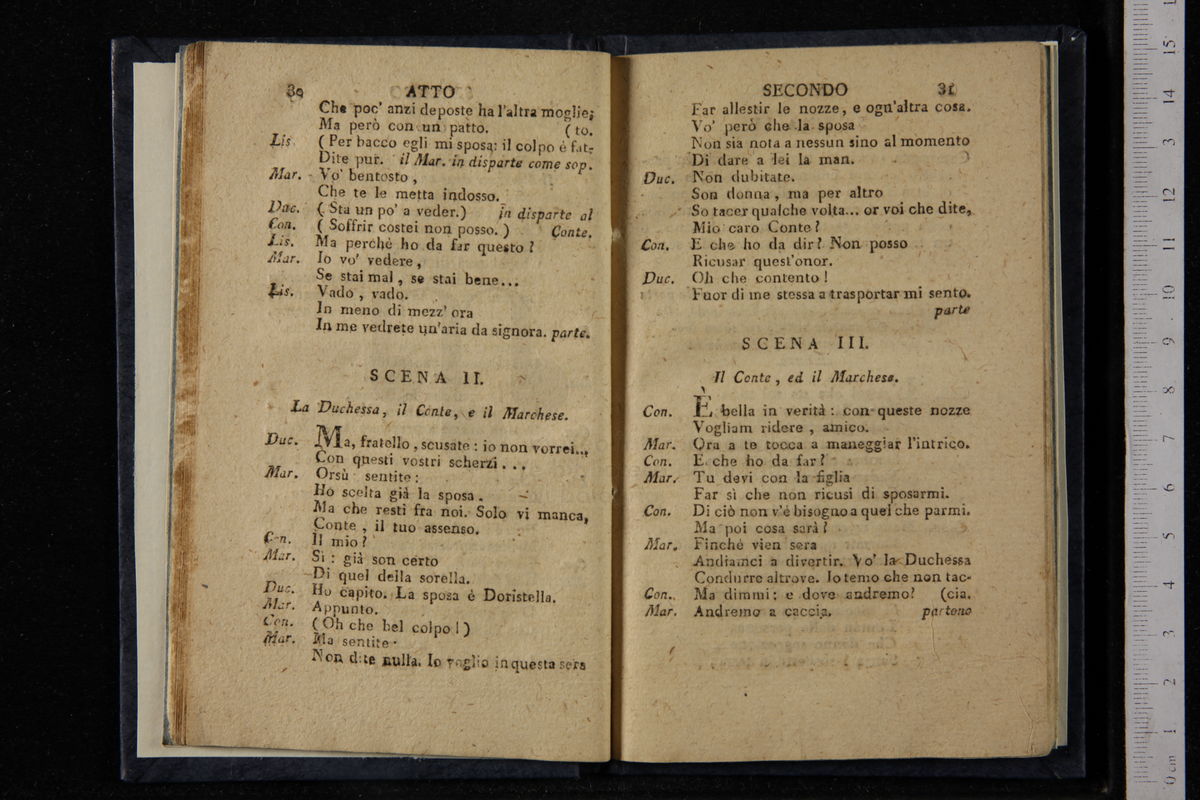 30 ATTO
Che poc' anzi deposte ha l'altra moglie;
Ma però con un patto. (to.
Lis. (Per bacco egli mi sposa: il colpo é fat-
Dite pur. il Mar. in disparte come sop.
Mar. Vo' bentosto,
Che te le metta indosso.
Duc. (Sta un po' a veder.) in disparte al
Con. (Soffrir costei non posso.) Conte.
Lis. Ma perché ho da far questo?
Mar. Io vo' vedere,
Se stai mal, se stai bene...
Lis. Vado, vado.
In meno di mezz' ora
In me vedrete un'aria da signora. parte.
SCENA II.
La Duchessa, il Conte, e il Marchese.
Duc. Ma, fratello, scusate: io non vorrei...
Con questi vostri scherzi...
Mar. Orsù sentite:
Ho scelta già la sposa.
Ma che resti fra noi. Solo vi manca,
Conte, il tuo assenso.
Con. Il mio?
Mar. Si: già son certo
Di quel della sorella.
Duc. Ho capito. La sposa é Doristella.
Mar. Appunto.
Con. (Oh che bel colpo!)
Mar. Ma sentite.
Non dite nulla. Io voglio in questa sera
SECONDO 31
Far allestir le nozze, e ogn'altra cosa.
Vo' però che la sposa
Non sia nota a nessun sino al momento
Di dare a lei la man.
Duc. Non dubitate.
Son donna, ma per altro
So tacer qualche volta... or voi che dite,
Mio caro Conte?
Con. E che ho da dir? Non posso
Ricusar quest'onor.
Duc. Oh che contento!
Fuor di me stessa a trasportar mi sento.
parte
SCENA III.
Il Conte, ed il Marchese.
Con. È bella in verità: con queste nozze
Vogliam ridere, amico.
Mar. Ora a te tocca a maneggiar l'intrico.
Con. E che ho da far?
Mar. Tu devi con la figlia
Far sì che non ricusi di sposarmi.
Con. Di ciò non v'é bisogno a quel che parmi.
Ma poi cosa sarà?
Mar. Finché vien sera
Andiamci a divertir. Vo' la Duchessa
Condurre altrove. Io temo che non tac-
Con. Ma dimmi: e dove andremo? (cia.
Mar. Andremo a caccia. partono
0 cm 1 2 3 4 5 6 7 8 9 10 11 12 13 14 15